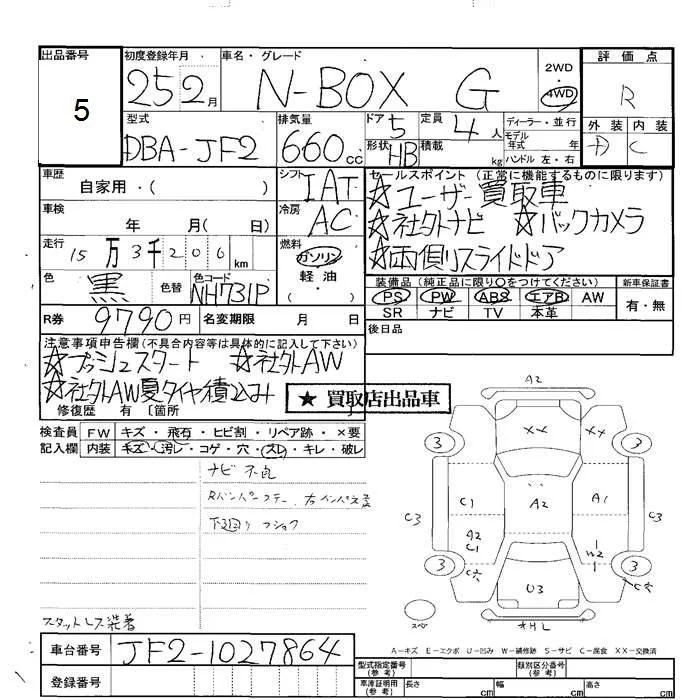 出品番号 初度登録年月 車名・グレード 2WD 評価点
5 25 2月 N-BOX G 4WD R
型式 排気量 ドア 定員 ディーラー・並行 外装 内装
DBA-JF2 660cc 5 4人 モデル年式 年 D C
形状 HB 積載 kg ハンドル 左・右
車歴 自家用・( ) シフト IAT セールスポイント (正常に機能するものに限ります)
☆ユーザー買取車
車検 年 月( 日) 冷房 AC ☆社外ナビ ☆バックカメラ
走行 15万3千206km 燃料 ガソリン 軽油 ( ) ☆両側スライドドア
色 黒 色替 色コード NH731P 装備品 (純正品に限り○をつけてください) 新車保証書
PS PW ABS エアB AW 有・無
SR ナビ TV 本革
R券 9790円 名変期限 月 日 後日品
注意事項申告欄(不具合内容等は具体的に記入して下さい)
☆プッシュスタート ☆社外AW
☆社外AW夏タイヤ積込み
修復歴 有 〔箇所
★ 買取店出品車
検査員 FW キズ・飛石・ヒビ割・リペア跡・×要
記入欄 内装 キズ・汚レ・コゲ・穴・スレ・キレ・破レ
ナビ不良
下廻り
スタットレス装着
A2
XX XX
3 3
C1 A2 A1
C3 C3
A2 C1 W2
3 3
U3
スペア
A-キズ E-エクボ U-凹み W-補修跡 S-サビ C-腐食 XX-交換済
車台番号 JF2-1027864
型式指定番号(参考) 類別区分番号(参考)
登録番号 車庫証明用(参考) 長さ cm 幅 cm 高さ cm